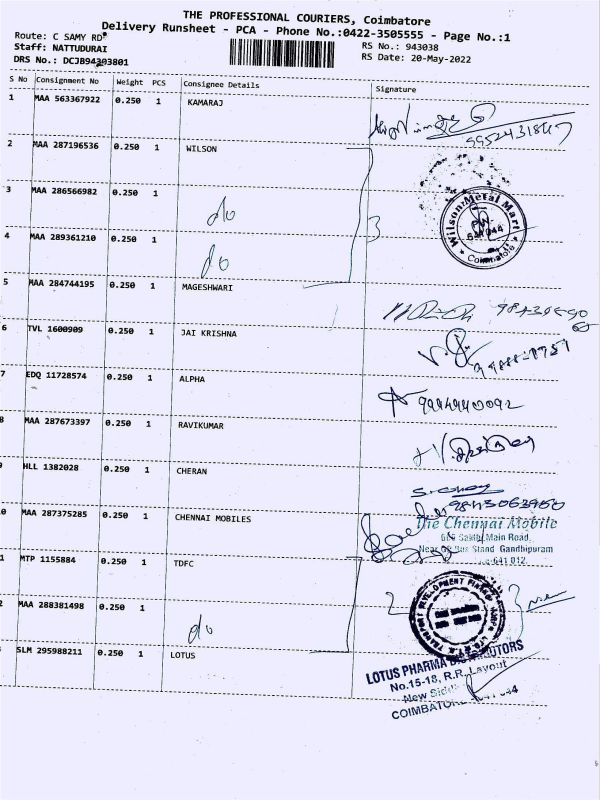 THE PROFESSIONAL COURIERS, Coimbatore
Delivery Runsheet - PCA - Phone No.:0422-3505555 - Page No.:1
Route: C SAMY RD
Staff: NATTUDURAI
DRS No.: DCJB94303801
RS No.: 943038
RS Date: 20-May-2022
S No Consignment No Weight PCS Consignee Details Signature
1 MAA 563367922 0.250 1 KAMARAJ
2 MAA 287196536 0.250 1 WILSON
3 MAA 286566982 0.250 1 do
4 MAA 289361210 0.250 1 do
3
Wilson Metal Mart
Coimbatore
5 MAA 284744195 0.250 1 MAGESHWARI
6 TVL 1600909 0.250 1 JAI KRISHNA
7 EDQ 11728574 0.250 1 ALPHA
8 MAA 287673397 0.250 1 RAVIKUMAR
HLL 1382028 0.250 1 CHERAN
9843063960
0 MAA 287375285 0.250 1 CHENNAI MOBILES
The Chennai Mobile
Main Road,
Near Bus Stand Gandhipuram
641 012
1 MTP 1155884 0.250 1 TDFC
2 MAA 288381498 0.250 1 do
2
SLM 295988211 0.250 1 LOTUS
LOTUS PHARMA DISTRIBUTORS
No.15-18, R.R. Layout
New
COIMBATORE